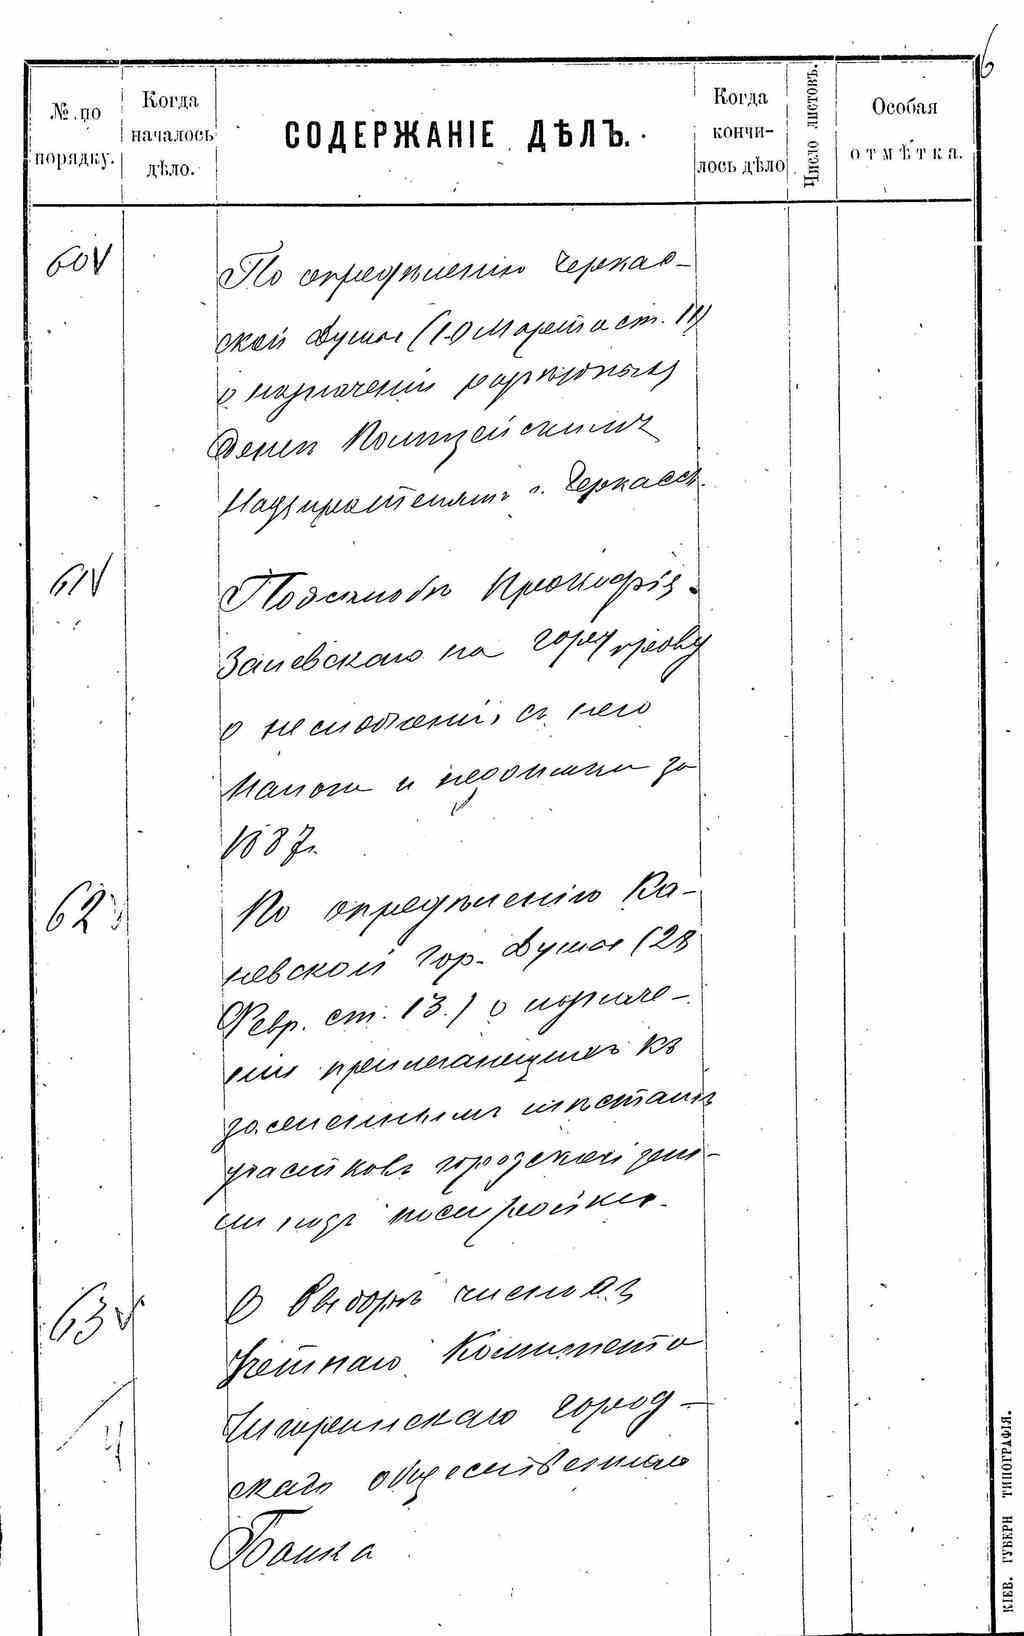 6
№ по порядку.
Когда началось дѣло.
СОДЕРЖАНІЕ ДѢЛЪ.
Когда кончилось дѣло
Число листовъ.
Особая отмѣтка.
60 V
По опредѣленію Черкас-
ской Думы (10 Марта ст. 11)
о назначеніи разъѣздныхъ
Денегъ Полицейскимъ
Надзирателямъ г. Черкассъ.
61 V
По жалобѣ Прокофія
Залевскаго на Гор. Управу
о несложеніи съ него
Налога и недоимки за
1887 г.
62 V
По опредѣленію Ка-
невской Гор. Думы (28
Февр. ст. 13.) о
прилегающихъ къ
мѣстамъ
участковъ городской зем-
ли подъ постройки.
63 V
О выборѣ членовъ
Учетнаго Комитета
Чигиринскаго Город-
скаго общественнаго
Банка
4
КІЕВ. ГУБЕРН ТИПОГРАФІЯ.